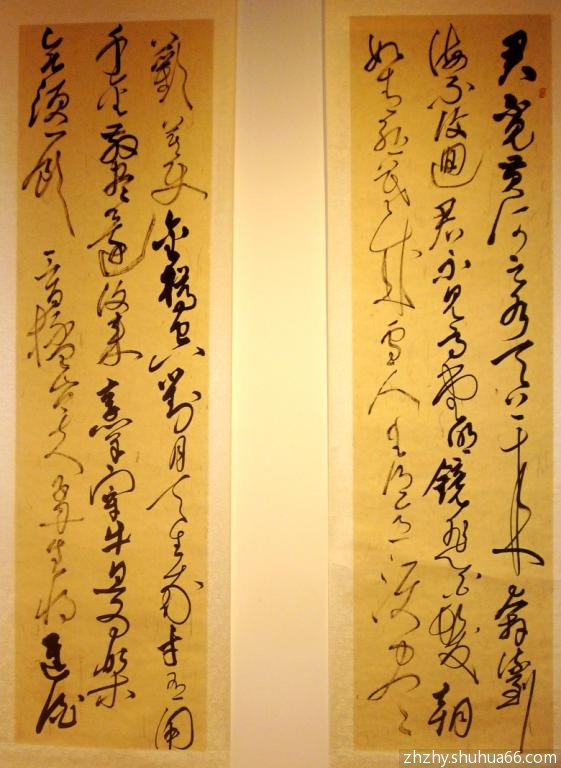 君見黄河之水天上来奔流到
海不復迴君不見高堂明鏡悲白髮朝
如青絲暮成雪人生得意須盡
歡莫使金樽空對月天生我才有用
千金散盡還復來烹羊宰牛且為樂
會須一飲三百杯岑夫子丹丘生將進酒
zhzhy.shuhua66.com